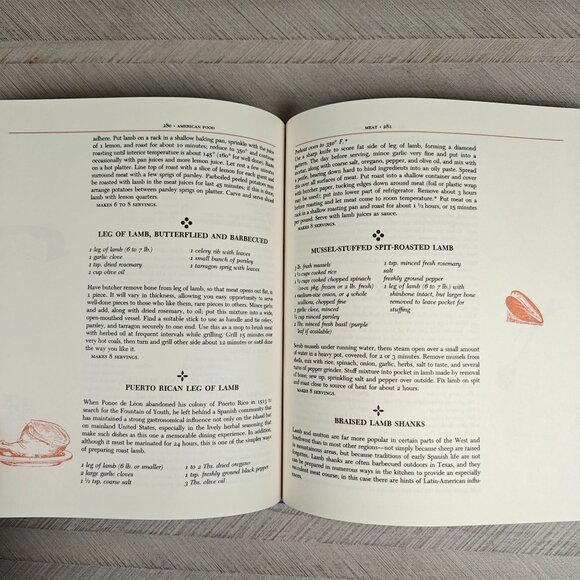 280 · AMERICAN FOOD
adhere. Put lamb on a rack in a shallow baking pan, sprinkle with the juice
of 1 lemon, and roast for about 10 minutes; reduce to 350° and continue
roasting until interior temperature is about 145° (160° for well done). Baste
occasionally with pan juices and more lemon juice. Let rest a few minutes
on a hot platter. Line top of roast with a slice of lemon for each guest and
surround meat with a few sprigs of parsley. Parboiled peeled potatoes may
be roasted with lamb in the meat juices for the last 45 minutes; if this is done,
arrange potatoes between parsley sprigs on platter. Carve and serve sliced
lamb with lemon quarters.
MAKES 6 TO 8 SERVINGS.
LEG OF LAMB, BUTTERFLIED AND BARBECUED
1 leg of lamb (6 to 7 lb.)
1 garlic clove
1 tsp. dried rosemary
1 cup olive oil
1 celery rib with leaves
1 small bunch of parsley
1 tarragon sprig with leaves
Have butcher remove bone from leg of lamb, so that meat opens out flat, in
1 piece. It will vary in thickness, allowing you easy opportunity to serve
well-done pieces to those who like them, rare pieces to others. Mince garlic
and add, along with dried rosemary, to oil; put this mixture into a wide,
opened bowl. Find a suitable stick to use as handle and tie celery,
parsley, and tarragon securely to one end. Use this as a mop to brush meat
with herbed oil at frequent intervals while grilling. Grill 15 minutes
over hot coals, then turn and grill other side about 12 minutes or until done
the way you like it.
MAKES 8 SERVINGS.
PUERTO RICAN LEG OF LAMB
When Ponce de Léon abandoned his colony of Puerto Rico in 1513 to
search for the Fountain of Youth, he left behind a Spanish community that
has maintained a strong gastronomical influence not only on the island but on
mainland United States, especially in the lively herbal seasoning that
make such dishes as this one a memorable dining experience. In addition,
although it must be marinated for 24 hours, this is one of the simpler ways
of preparing roast lamb.
1 leg of lamb (6 lb. or smaller)
2 large garlic cloves
1 ½ tsp. coarse salt
1 to 2 Tbs. dried oregano
1 tsp. freshly ground black pepper
3 Tbs. olive oil
MEAT · 281
Preheat oven to 350° F.*
Use a sharp knife to score fat side of leg of lamb, forming a diamond
pattern. The day before serving, mince garlic very fine and put into a
mortar, along with coarse salt, oregano, pepper, and olive oil, and mix with
a pestle, bearing down hard to bind ingredients into an oily paste. Spread
this over all surfaces of meat. Put meat into a shallow container and cover
with butcher paper, tucking edges down around meat (foil or plastic wrap
can be used); put into lower part of refrigerator. Remove about 3 hours
before roasting and let meat come to room temperature.* Put meat on a
rack in a shallow roasting pan and roast for about 1 ½ hours, or 15 minutes
per pound. Serve with lamb juices as sauce.
MAKES 8 SERVINGS.
MUSSEL-STUFFED SPIT-ROASTED LAMB
lb. fresh mussels
½ cups cooked rice
½ cups cooked chopped spinach
(10-oz. pkg. frozen or 2 lb. fresh)
medium-size onion, or 4 whole
scallions, chopped fine
garlic clove, minced
cup minced parsley
Tbs. minced fresh basil (purple
leaf if available)
1 tsp. minced fresh rosemary
salt
freshly ground pepper
1 leg of lamb (6 to 7 lb.) with
shinbone intact, but larger bone
removed to leave pocket for
stuffing
Scrub mussels under running water, then steam open over a small amount
of water in a heavy pot, covered, for 2 or 3 minutes. Remove mussels from
shells, mix with rice, spinach, onion, garlic, herbs, salt to taste, and several
turns of pepper grinder. Stuff mixture into pocket in lamb made by removal
of bone, sew up, sprinkling salt and pepper over outside. Fix lamb on spit
and roast close to source of heat for about 2 hours.
MAKES 8 SERVINGS.
BRAISED LAMB SHANKS
Lamb and mutton are far more popular in certain parts of the West and
Southwest than in most other regions—not simply because sheep are raised
in mountainous areas, but because traditions of early Spanish life are not
easily forgotten. Lamb shanks are often barbecued outdoors in Texas, and they
can be prepared in numerous ways in the kitchen to provide an especially
succulent meat course; in this case there are hints of Latin-American influ-